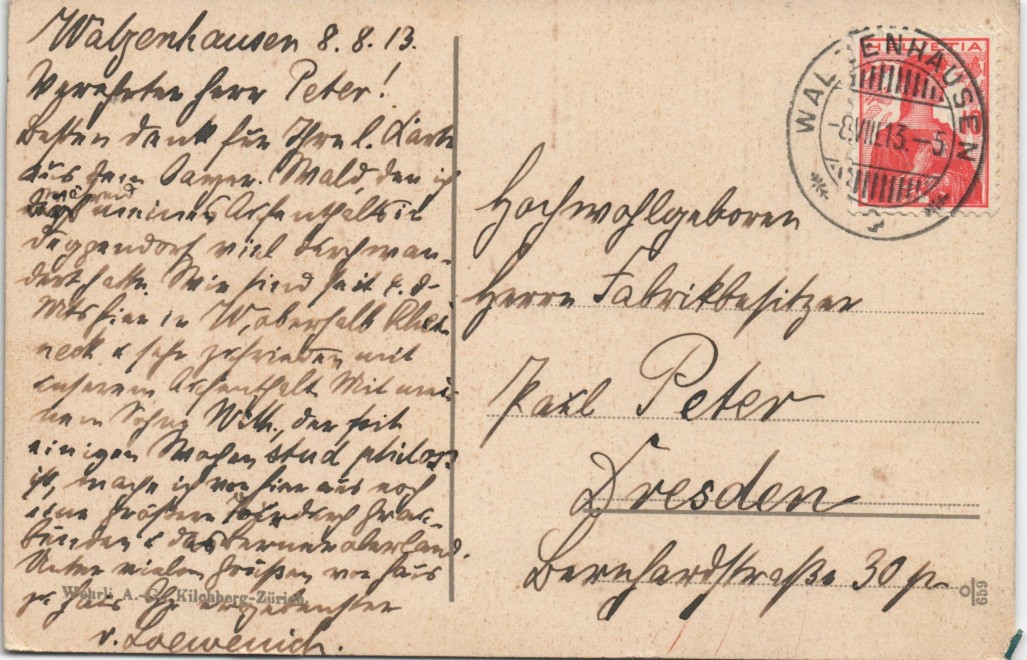 Walzenhausen 8.8.13.
Verehrter Herr Peter!
Besten Dank für Ihre l. Karte
aus dem Bayer. Wald, den ich
während meines Aufenthalts in
Deggendorf viel durchwan-
dert hatte. Wir sind seit 4. d.
Mts hier in W, oberhalb Rhei-
neck & sehr zufrieden mit
unserem Aufenthalt. Mit mei-
nem Sohne Wilh., der seit
einigen Wochen stud philos.
ist, mache ich von hier aus noch
eine größere Tour durch Grau-
bünden & das Berner oberland.
Unter vielen Grüßen von Haus
zu Haus Ihr ergebenster
v. Loewenich.
Wehrli A.-G., Kilchberg-Zürich.
HELVETIA
WALZENHAUSEN
-8.VIII.13.-5
Hochwohlgeboren
Herrn Fabrikbesitzer
Paul Peter
Dresden
Bernhardstraße 30 p.
659